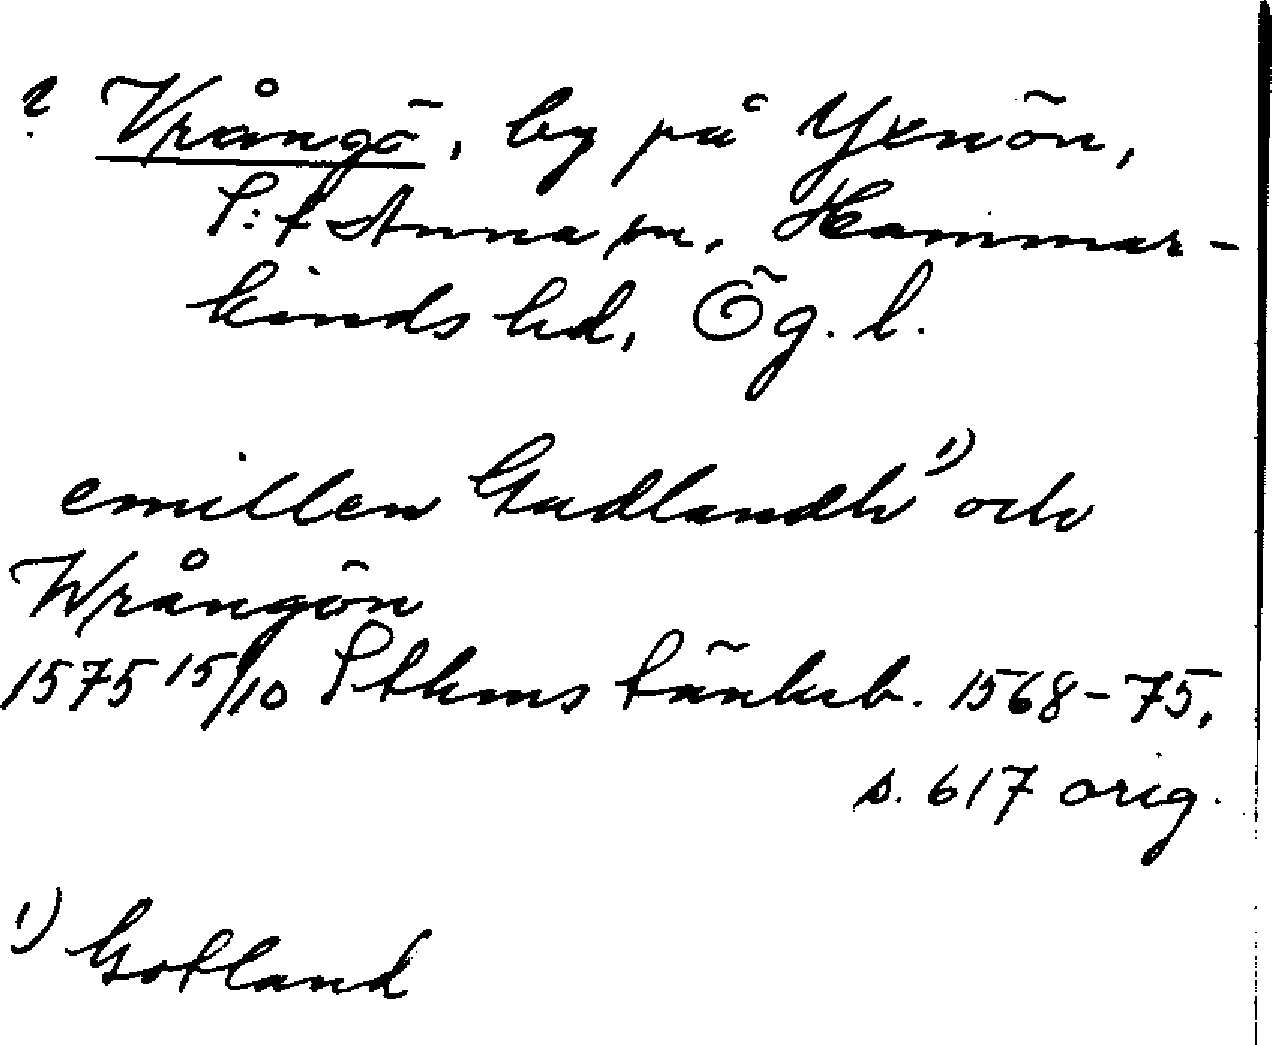 ? Vrångö, by på Yxnön,
S:t Anna sn, Hammar-
kinds hd, Ög. l.
emillen Gudlandh 1) och
Wrångön
1575 15/10 Sthms tänkeb. 1568-75,
s. 617 orig.
1) Gotland